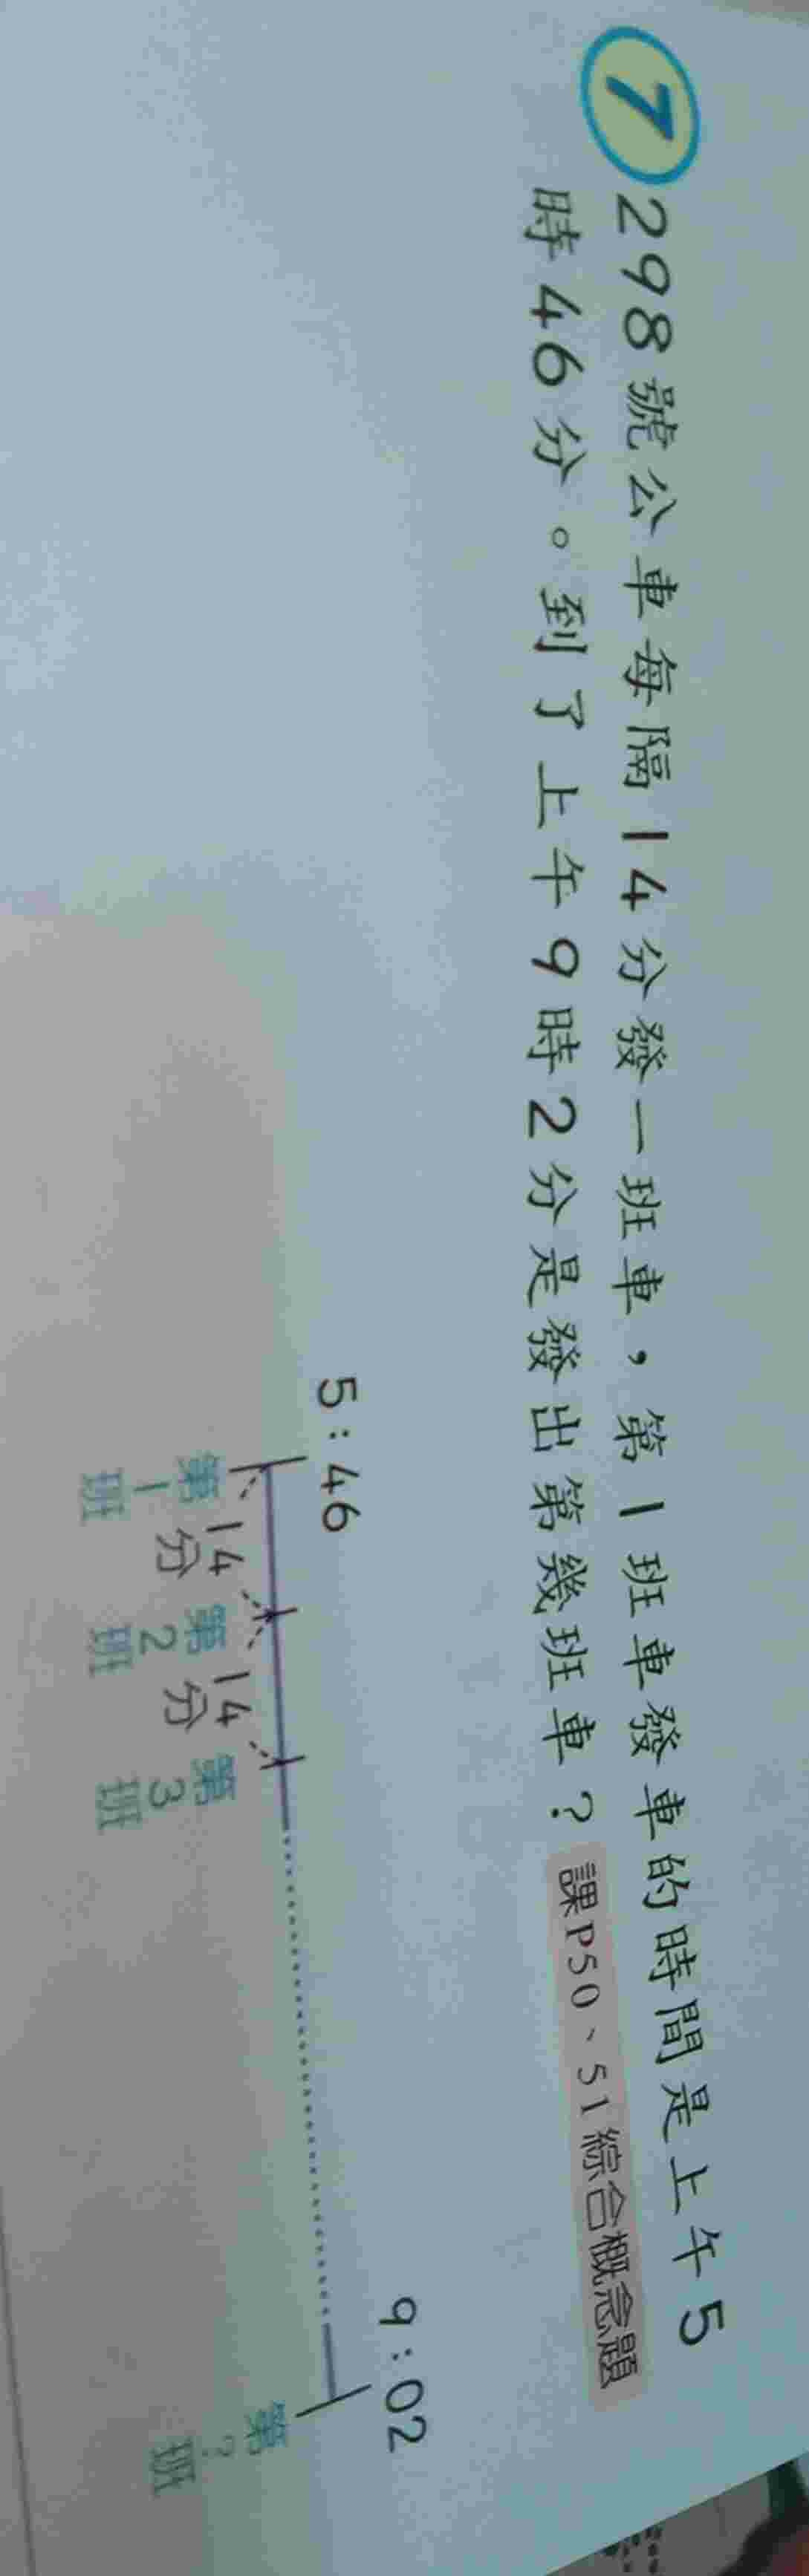 7 298號公車每隔14分發一班車，第1班車發車的時間是上午5
時46分。到了上午9時2分是發出第幾班車？ 課P50、51綜合概念題
5:46 9:02
14分 14分
第1班 第2班 第3班 第?班